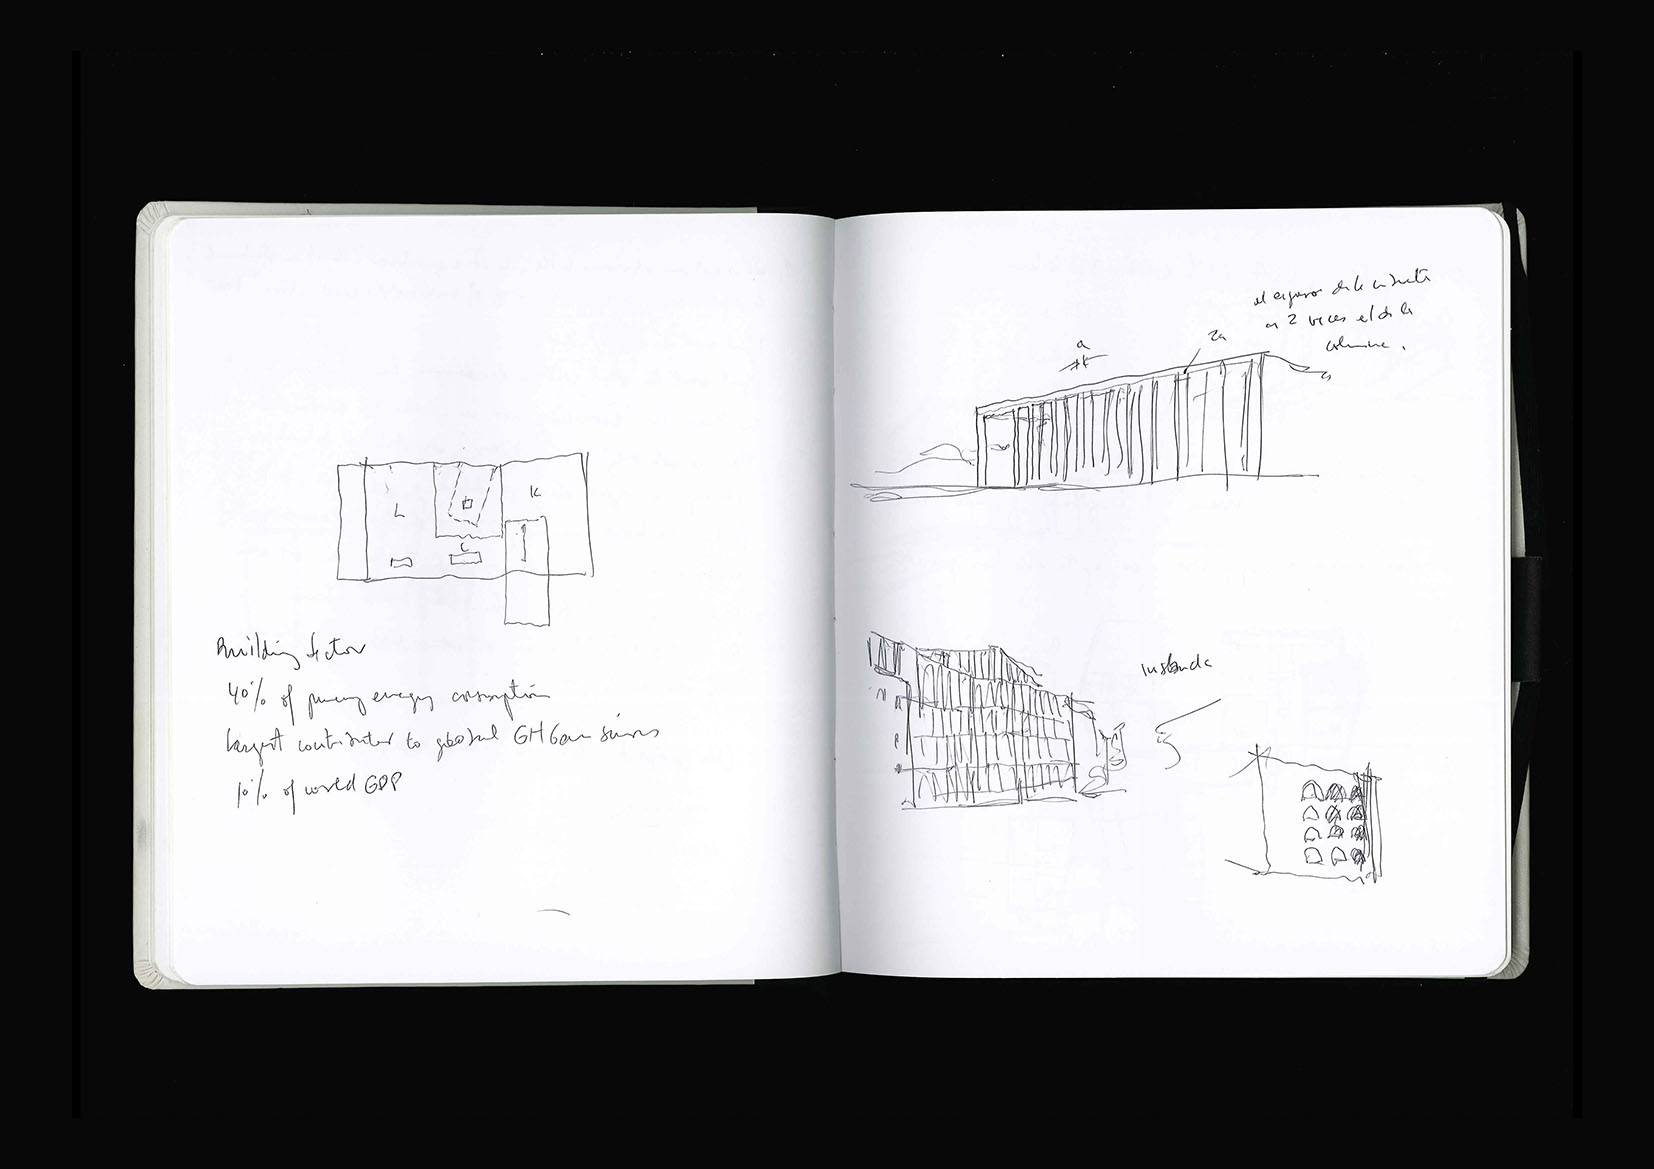 L
K
C
Building sector
40% of primary energy consumption
largest contributor to global GHG emissions
10% of world GDP
el espesor de la cubierta
es 2 veces el de la
columna.
a
2a